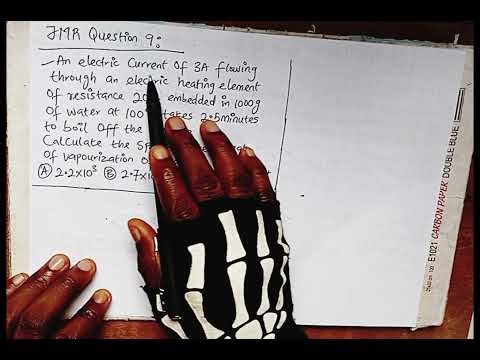 JMR Question 9:
An electric Current Of 3A flowing
through an electric heating element
Of resistance 20 embedded in 1000g
Of water at 100 takes 2.5minutes
to boil Off the
Calculate the
Of vapourization
(A) 2.2x10³ (B) 2.7x10
E1021 CARBON PAPER DOUBLE BLUE